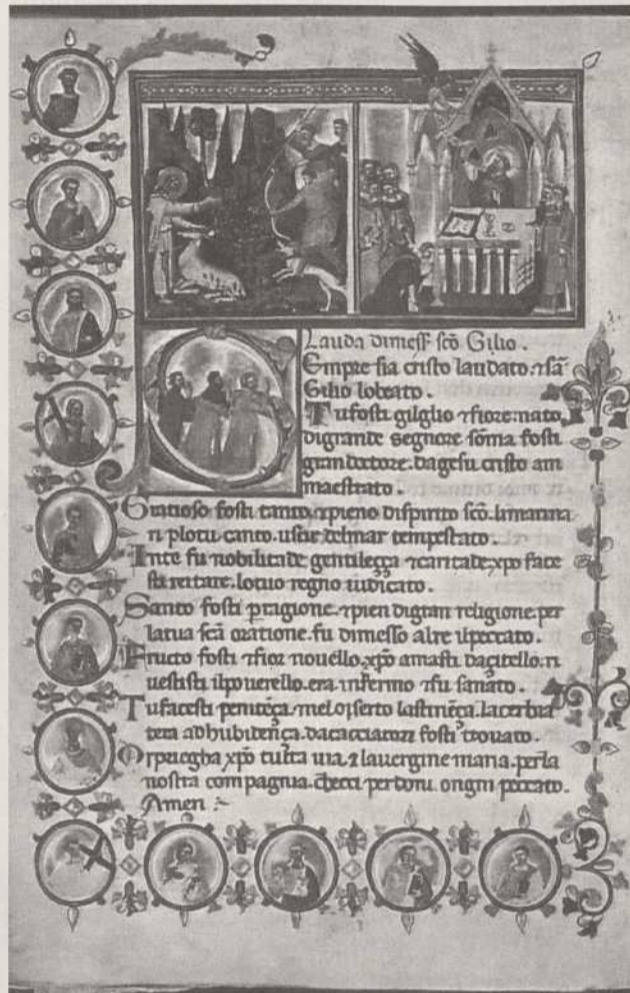 Lauda dimess sco Gilio.
Empre sia cristo laudato. ⁊ sā
Gilio lobeato.
Tu fosti gilglio ⁊ fiore. nato
digrande segnore. soma fosti
gran doctore. dagesu cristo am
maestrato.
Gratioso fosti tanto. ⁊ pieno dispirito sco. limarina
ri plotu canto. uscir delmar tempestato.
Inte fu nobilitade gentileçça ⁊ caritade. xpo face
sti reitare. lotuo regno iudicato.
Santo fosti p ragione. ⁊ pien digran religione. per
latua sca oratione. fu dimesso alre ilpeccato.
Fructo fosti ⁊ fior nouello. xpo amasti daçitello. ri
uestisti ilpouerello. era infermo ⁊ fu sanato.
Tu facesti penitēça. lastinēça. lacerbia
tera adhubidença. dacacciatori fosti trouato.
Or priegha xpo tutta uia. ⁊ lauergine maria. perla
nostra compagnia. checci perdoni. ongni peccato.
Amen